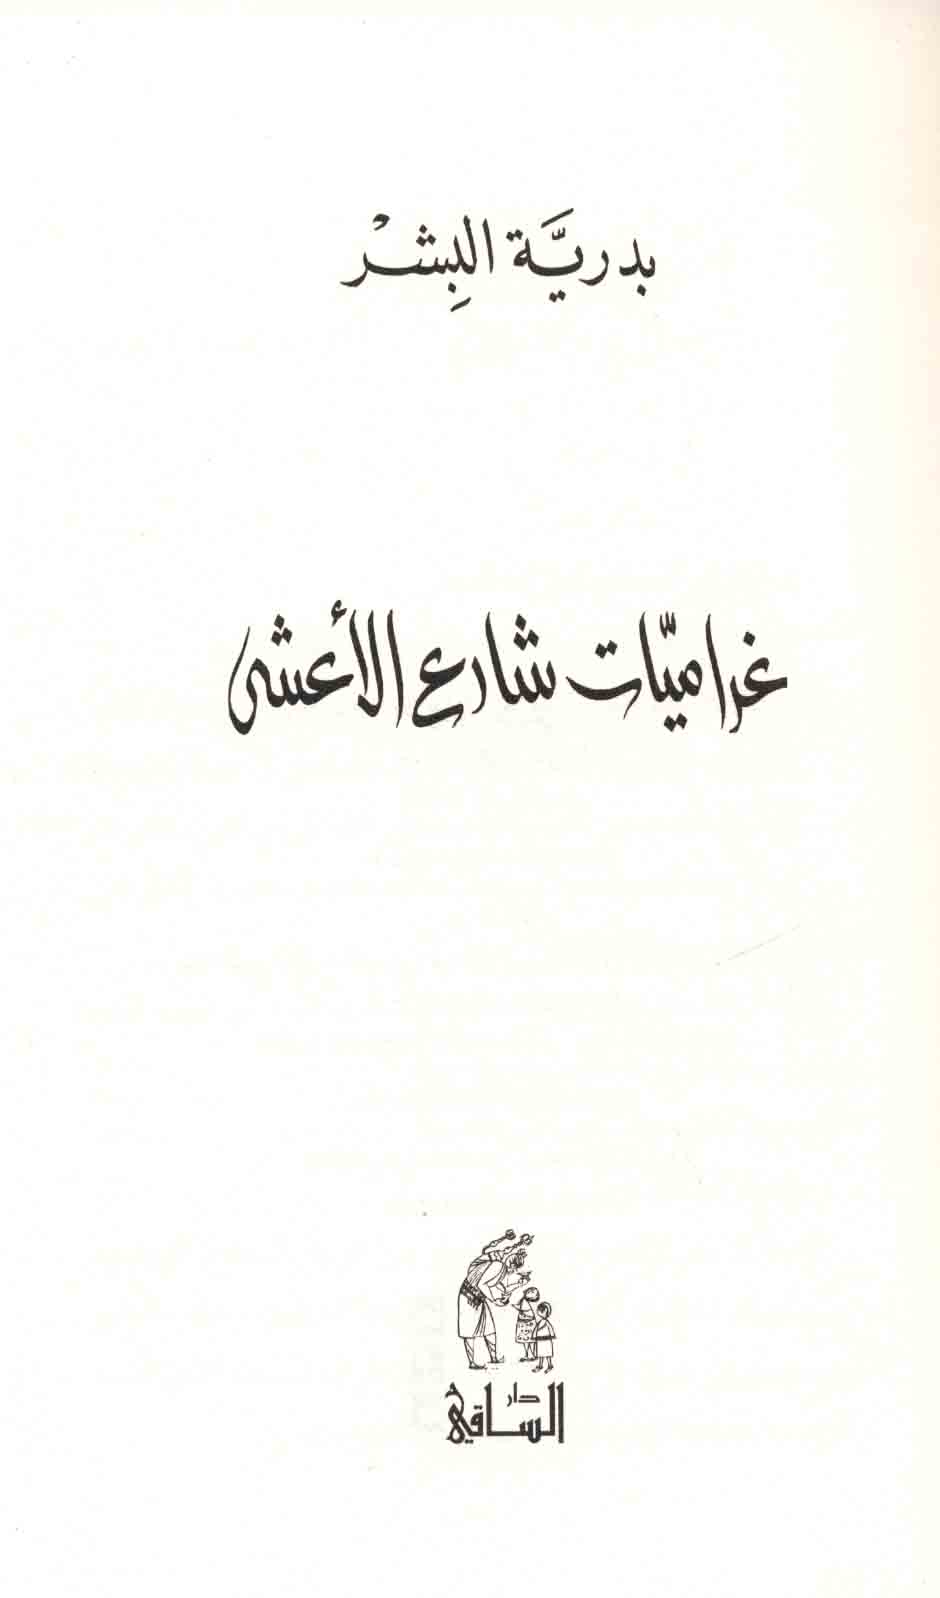 بدريَّة البِشْر
غراميّات شارع الأعشى
دار
الساقي